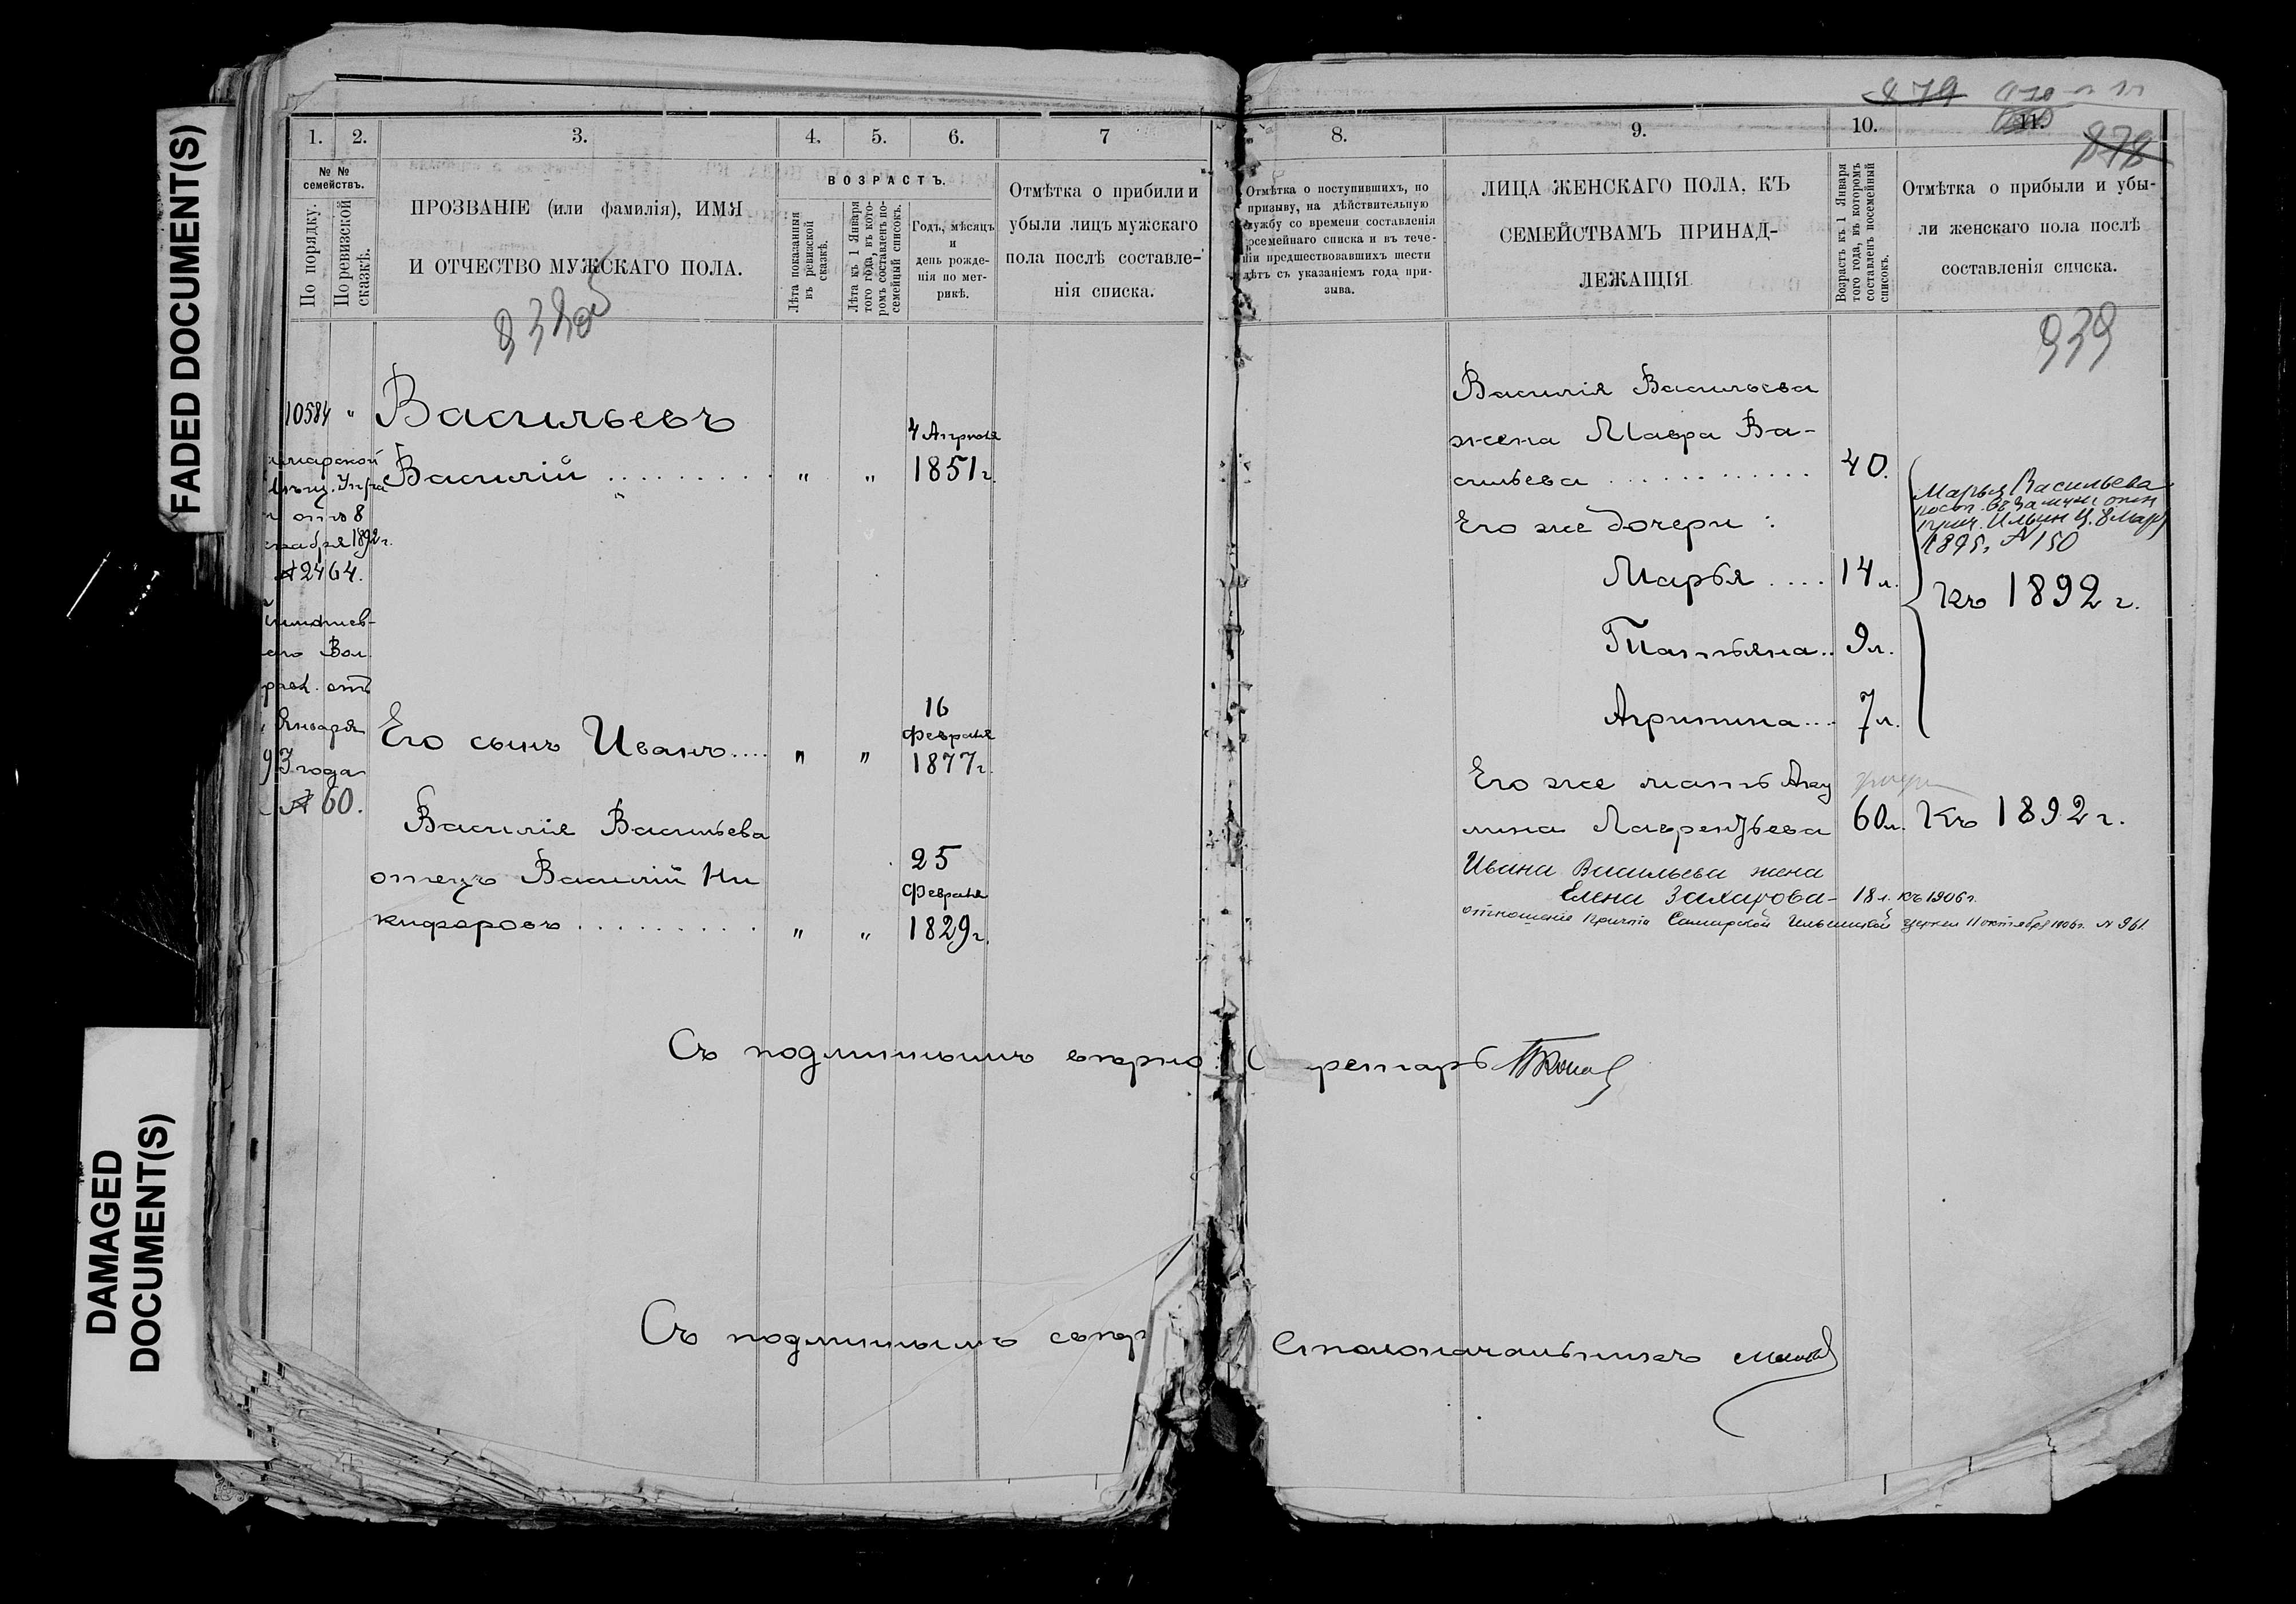 FADED DOCUMENT(S)
DAMAGED
DOCUMENT(S)
1.
2.
3.
4.
5.
6.
7
№ №
семействъ.
По порядку.
По ревизской
сказкѣ.
ПРОЗВАНІЕ (или фамилія), ИМЯ
И ОТЧЕСТВО МУЖСКАГО ПОЛА.
ВОЗРАСТЪ.
Лѣта показанныя
въ ревизской
сказкѣ.
Лѣта къ 1 Января
того года, въ кото-
ромъ составленъ по-
семейный списокъ.
Годъ, мѣсяцъ
и
день рожде-
нія по мет-
рикѣ.
Отмѣтка о прибыли и
убыли лицъ мужскаго
пола послѣ составле-
нія списка.
10584 "
Васильевъ
Василій . . . . . . . . . " "
4 Апрѣля
1851 г.
отъ 8
1892 г.
№ 2464.
Вол.
отъ
Января
93 года
№ 60.
Его сынъ Иванъ.... " "
16
Февраля
1877 г.
Василія Васильева
отецъ Василій Ни
кифоровъ . . . . . . . . . " "
25
Февраля
1829 г.
Съ подлиннымъ вѣрно
Съ подлиннымъ
879
878
939
8.
9.
10.
11.
Отмѣтка о поступившихъ, по
призыву, на дѣйствительную
службу со времени составленія
посемейнаго списка и въ тече-
ніи предшествовавшихъ шести
лѣтъ съ указаніемъ года при-
зыва.
ЛИЦА ЖЕНСКАГО ПОЛА, КЪ
СЕМЕЙСТВАМЪ ПРИНАД-
ЛЕЖАЩІЯ
Возрастъ къ 1 Января
того года, въ которомъ
составленъ посемейный
списокъ.
Отмѣтка о прибыли и убы-
ли женскаго пола послѣ
составленія списка.
Василія Васильева
жена Мавра Ва-
сильева . . . . . . . . . . . 40.
Его же дочери :
Марья .... 14 л.
Татьяна.. 9 л.
Агрипина.... 7 л.
Марья Васильева
1895 г. № 150
Къ 1892 г.
Его же мать Аку
лина Лаврентьева 60 л. Къ 1892 г.
Ивана Васильева жена
Елена Захарова - 18 л. къ 1906 г.
отношеніе Причта Самарской Ильинской церкви 11 октября 1906 г. № 961.
Столоначальникъ